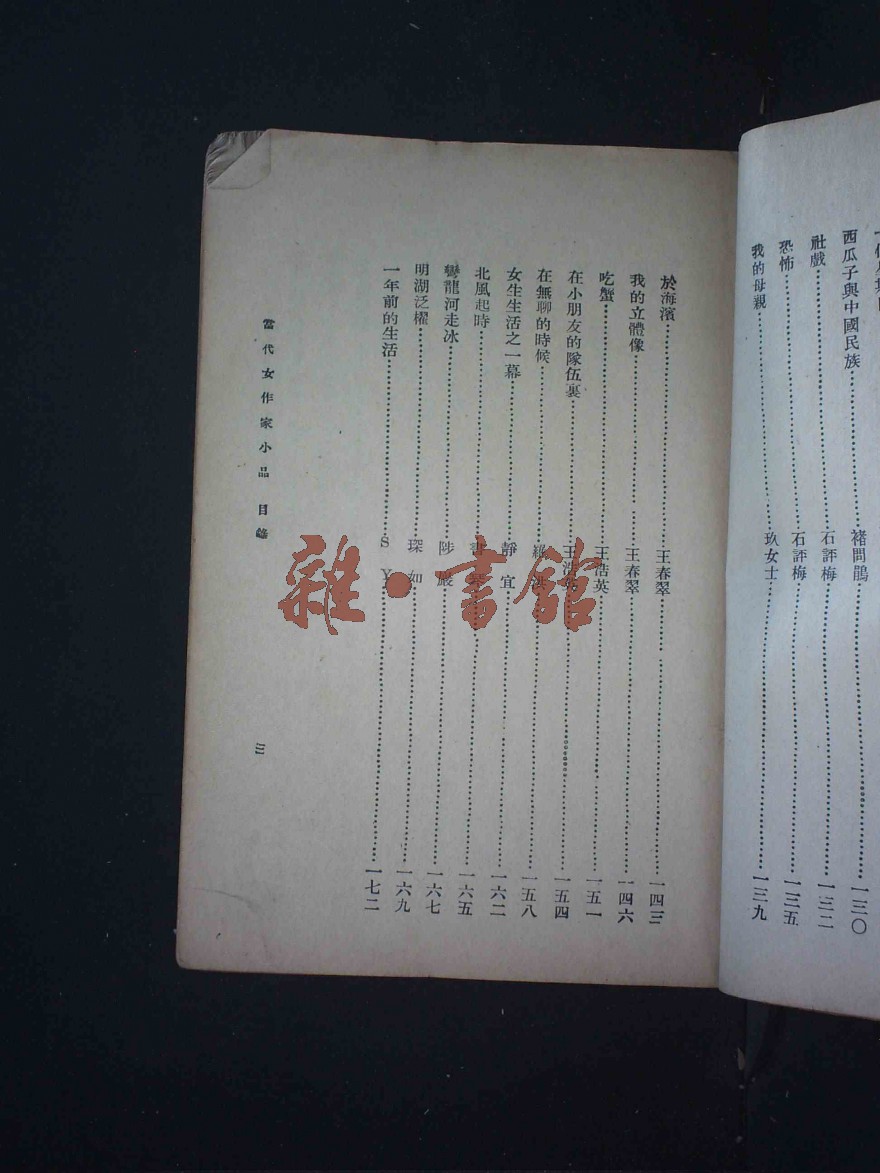 西瓜子與中國民族 褚問鵑 一三〇
社戲 石評梅 一三二
恐怖 石評梅 一三五
我的母親 玖女士 一三九
於海濱 王春翠 一四三
我的立體像 王春翠 一四六
吃蟹 王浩英 一五一
在小朋友的隊伍裏 王浩英 一五四
在無聊的時候 一五八
女生生活之一幕 靜宜 一六二
北風起時 一六五
彎龍河走冰 陟巖 一六七
明湖泛櫂 琛如 一六九
一年前的生活 S Y 一七二
當代女作家小品 目錄 三
雜·書館